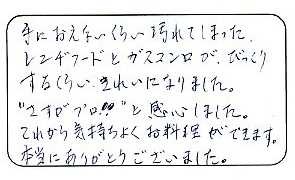 手におえないくらい汚れてしまった、
レンヂフードとガスコンロが、びっくり
するくらい、きれいになりました。
“さすがプロ!!”と感心しました。
これから気持ちよくお料理ができます。
本当にありがとうございました。